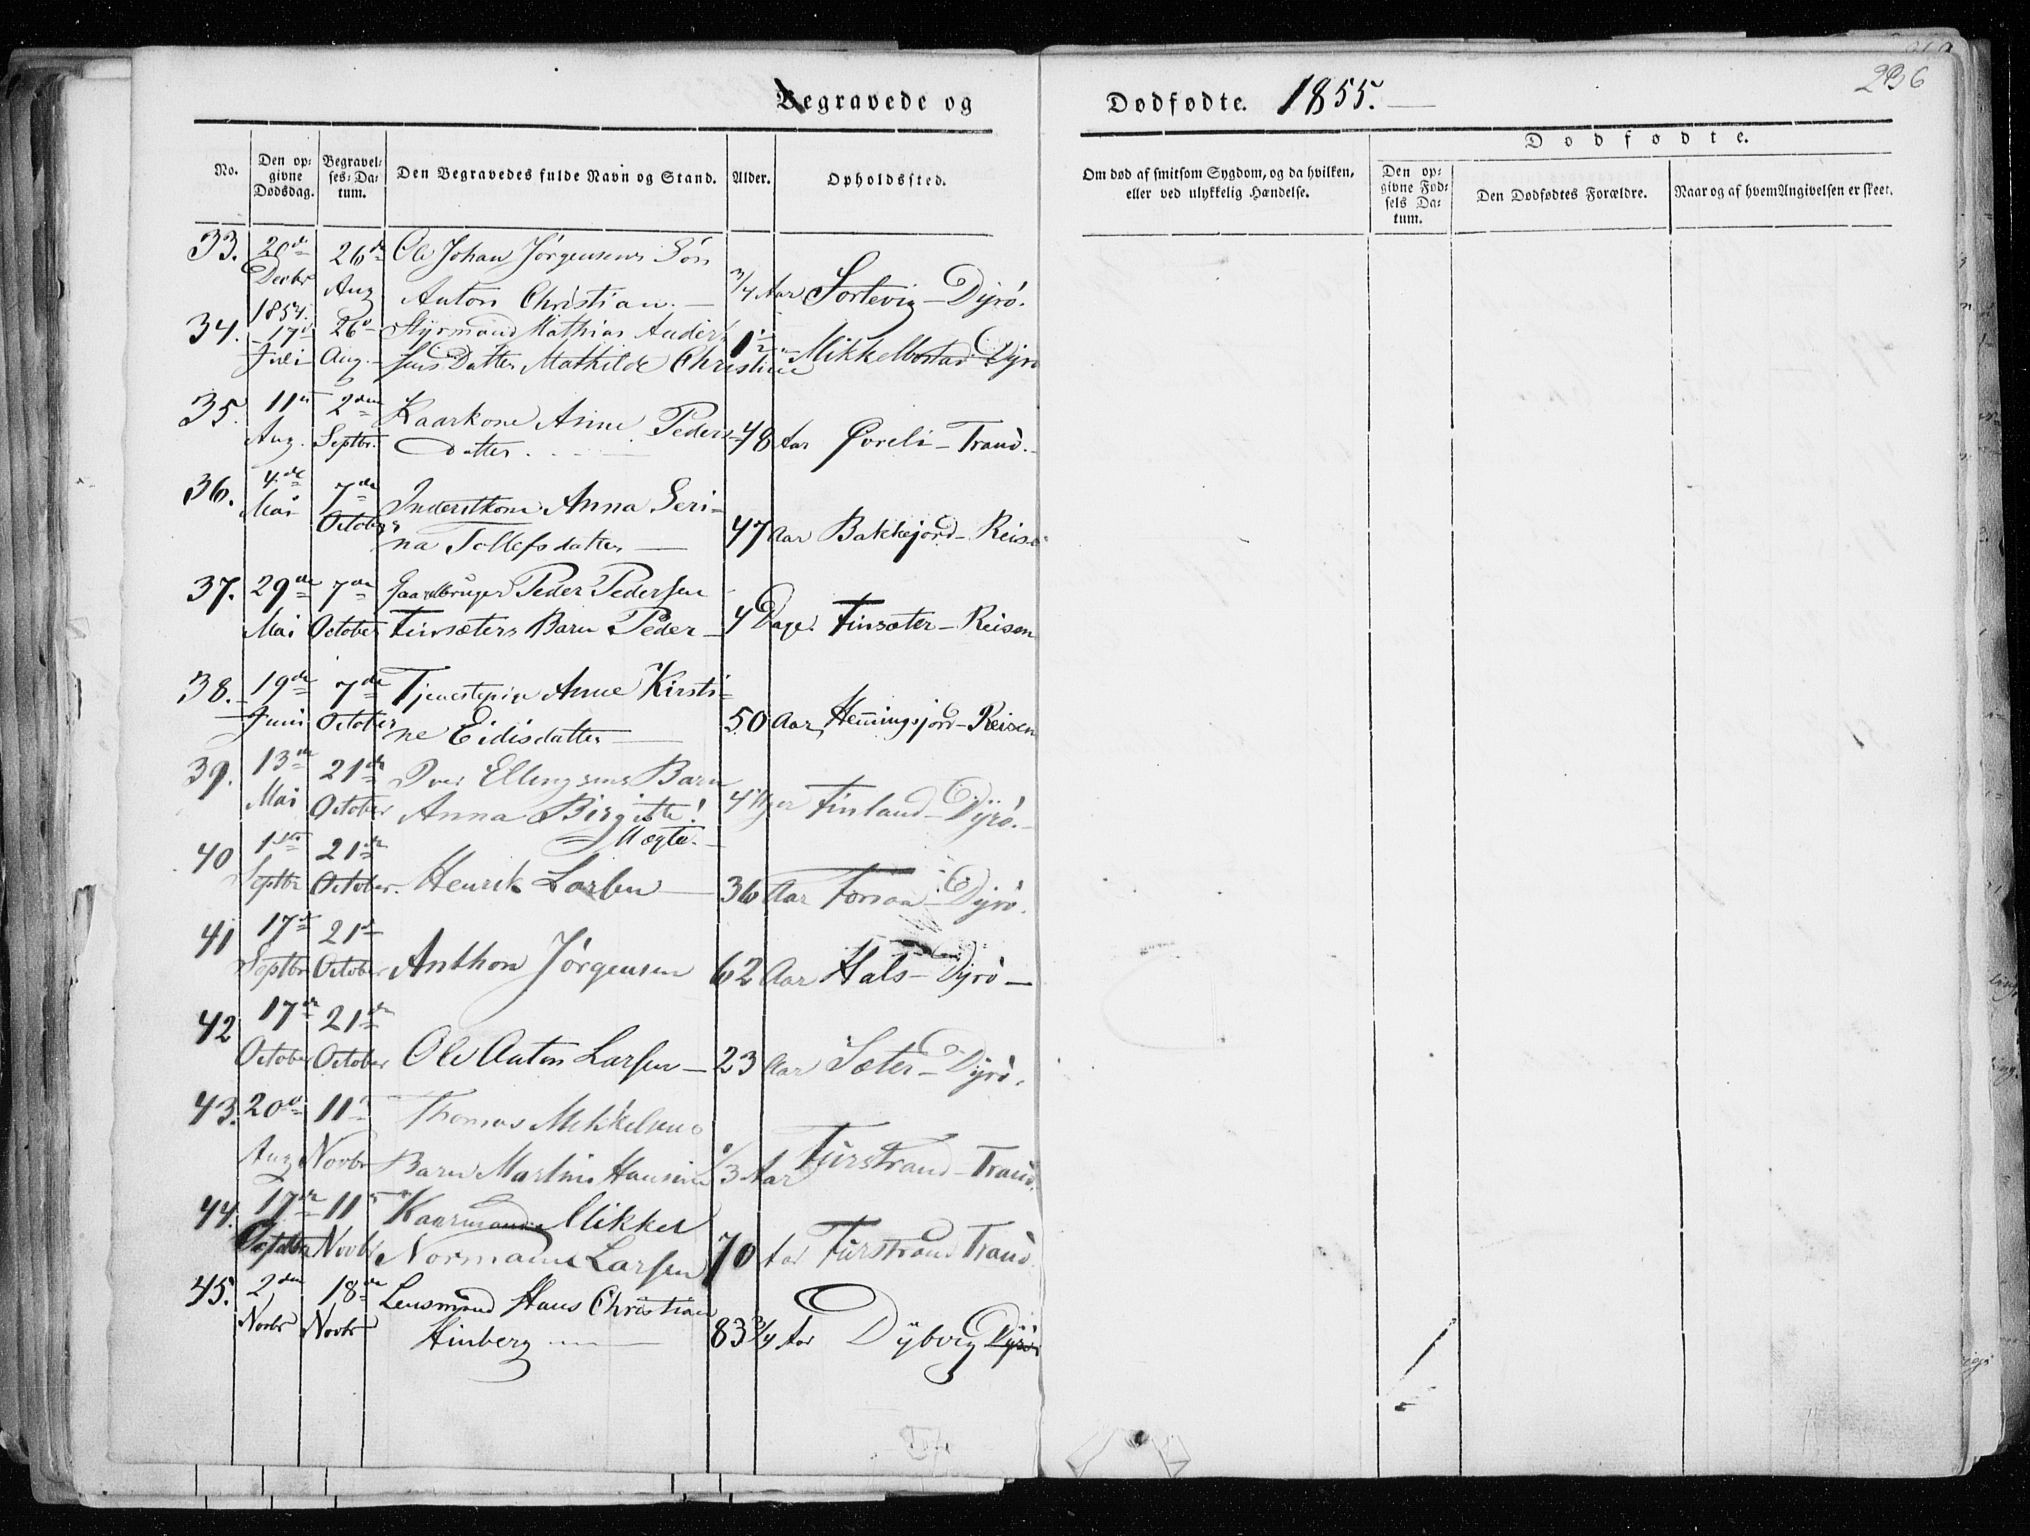 236
Begravede og Dødfødte. 1855.
Dødfødte.
No. Den opgivne Dødsdag. Begravelses-Datum. Den Begravedes fulde Navn og Stand. Alder. Opholdssted. Om død af smitsom Sygdom, og da hvilken, eller ved ulykkelig Hændelse. Den opgivne Fødsels Datum. Den Dødfødtes Forældre. Naar og af hvem Angivelsen er skeet.
33. 20de 26de Ole Johan Jörgensens Sön
Decbr 1854. Aug Anton Christian. — 3/4 Aar Sortevig — Dyrö.
34. 17d 26d Styrmand Mathias Ander-
Juli Aug. sens Datter Mathilde Christine 1 1/2 Mikkelbostad Dyrö
35. 11te 2den Kaarkone Anne Peders-
Aug. Septbr. datter. 48 Aar Øvreli — Tranö.
36. 4de 7de Inderstkone Anna Seri-
Mai October na Tollefsdatter — 47 Aar Bakkejord — Reisen
37. 29de 7de Gaardbruger Peder Pedersen
Mai October Finsæters Barn Peder — 4 Dage. Finsæter — Reisen
38. 19de 7de Tjenestepige Anne Kirsti-
Juni October ne Eidisdatter — 50 Aar Henningsjord — Reisen
39. 13de 21de Iver Ellingsens Barn
Mai October Anna Birgitte! 4 Uger Finland — Dyrö. —
40 1ste 21de
Septbr October. Henrik Larsen — 36 Aar Forsaa — Dyrö.
41 17de 21de
Septbr October Anthon Jörgensen 62 Aar Hals — Dyrö —
42 17de 21de
October October Ole Anton Larsen — 23 Aar Sæter — Dyrö.
43. 20d 11te Thomas Mikkelsens
Aug Novbr Barn Martin 1/3 Aar Furstrand — Tranö.
44. 17de 11te Kaarmand Mikkel
October Novbr Normann Larsen 70 Aar Furstrand Tranö
45. 2den 18de Lensmand Hans Christian
Novbr Novbr Hinberg — 83 3/4 Aar Dÿbvig Dyrö